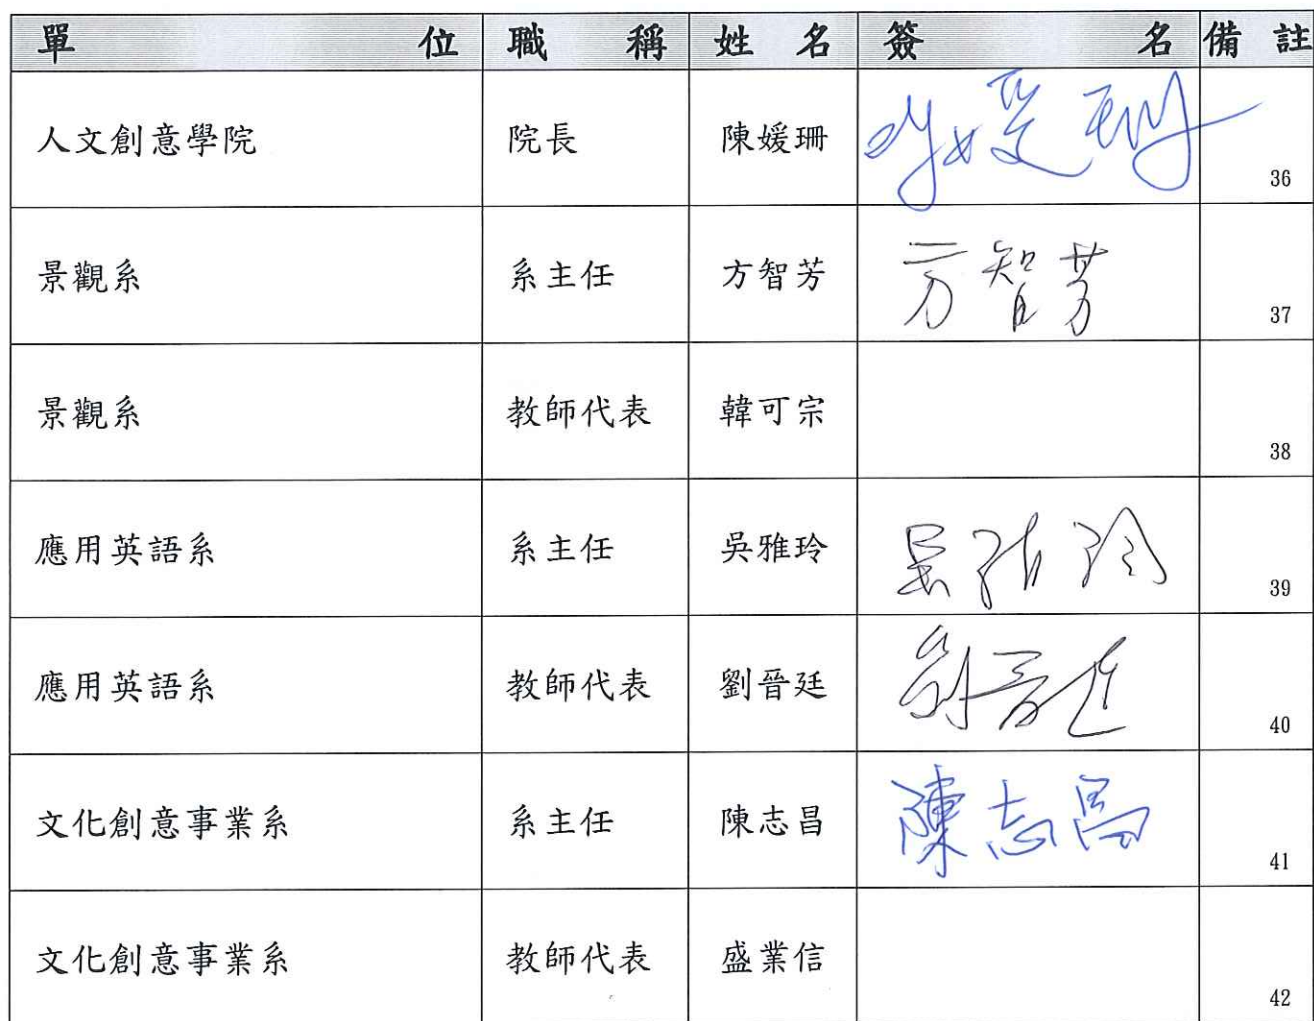 單位 職稱 姓名 簽名 備註
人文創意學院 院長 陳媛珊 陳媛珊 36
景觀系 系主任 方智芳 方智芳 37
景觀系 教師代表 韓可宗 38
應用英語系 系主任 吳雅玲 吳雅玲 39
應用英語系 教師代表 劉晉廷 劉晉廷 40
文化創意事業系 系主任 陳志昌 陳志昌 41
文化創意事業系 教師代表 盛業信 42